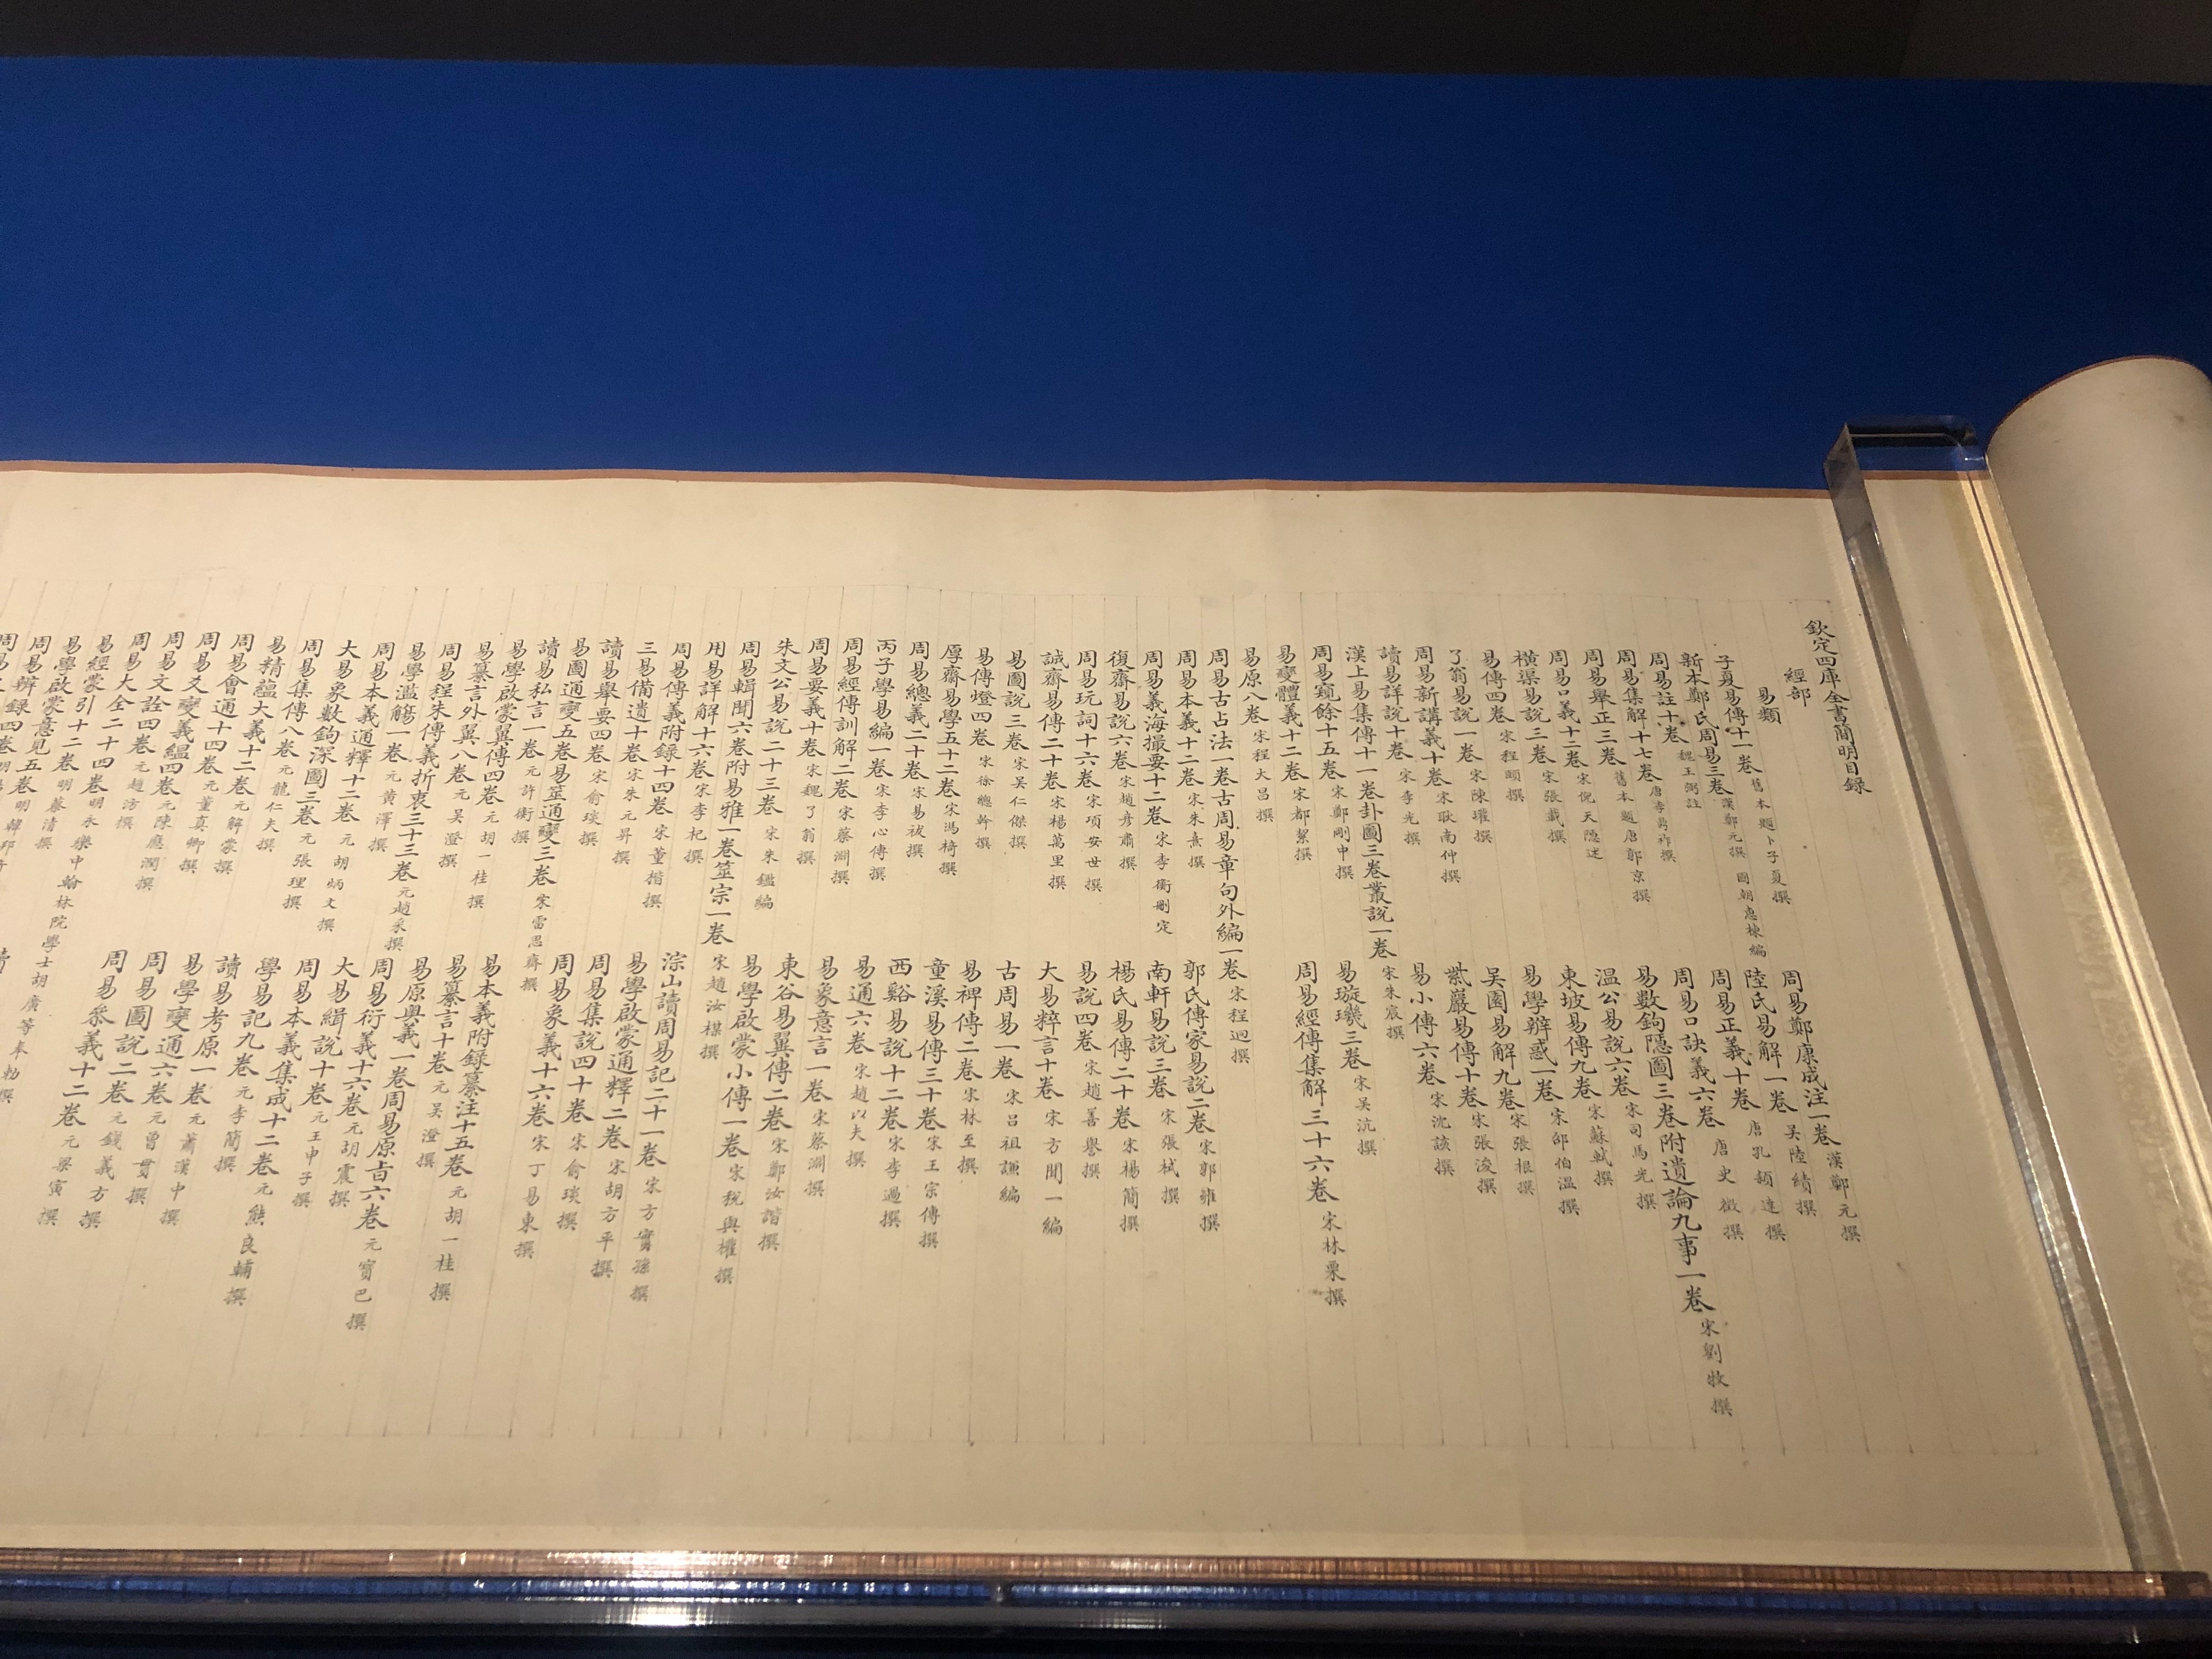 欽定四庫全書簡明目録
經部
易類
子夏易傳十一卷 舊本題卜子夏撰 周易鄭康成注一卷 漢鄭元撰
新本鄭氏周易三卷 漢鄭元撰 國朝惠棟編 陸氏易解一卷 吳陸績撰
周易註十卷 魏王弼註 周易正義十卷 唐孔穎達撰
周易集解十七卷 唐李鼎祚撰 周易口訣義六卷 唐史徵撰
周易舉正三卷 舊本題唐郭京撰 易數鉤隱圖三卷附遺論九事一卷 宋劉牧撰
周易口義十二卷 宋倪天隱述 溫公易說六卷 宋司馬光撰
橫渠易說三卷 宋張載撰 東坡易傳九卷 宋蘇軾撰
易傳四卷 宋程頤撰 易學辨惑一卷 宋邵伯溫撰
了翁易說一卷 宋陳瓘撰 吳園易解九卷 宋張根撰
周易新講義十卷 宋耿南仲撰 紫巖易傳十卷 宋張浚撰
讀易詳說十卷 宋李光撰 易小傳六卷 宋沈該撰
漢上易集傳十一卷卦圖三卷叢說一卷 宋朱震撰
周易窺餘十五卷 宋鄭剛中撰 易璇璣三卷 宋吳沆撰
易變體義十二卷 宋都絜撰 周易經傳集解三十六卷 宋林栗撰
易原八卷 宋程大昌撰
周易古占法一卷古周易章句外編一卷 宋程迥撰
周易本義十二卷 宋朱熹撰 郭氏傳家易說二卷 宋郭雍撰
周易義海撮要十二卷 宋李衡刪定 南軒易說三卷 宋張栻撰
復齋易說六卷 宋趙彥肅撰 楊氏易傳二十卷 宋楊簡撰
周易玩詞十六卷 宋項安世撰 易說四卷 宋趙善譽撰
誠齋易傳二十卷 宋楊萬里撰 大易粹言十卷 宋方聞一編
易圖說三卷 宋吳仁傑撰 古周易一卷 宋呂祖謙編
易傳燈四卷 宋徐總幹撰 易裨傳二卷 宋林至撰
厚齋易學五十二卷 宋馮椅撰 童溪易傳三十卷 宋王宗傳撰
周易總義二十卷 宋易祓撰 西谿易說十二卷 宋李過撰
丙子學易編一卷 宋李心傳撰 易通六卷 宋趙以夫撰
周易經傳訓解二卷 宋蔡淵撰 易象意言一卷 宋蔡淵撰
周易要義十卷 宋魏了翁撰 東谷易翼傳二卷 宋鄭汝諧撰
朱文公易說二十三卷 宋朱鑑編 易學啟蒙小傳一卷 宋稅與權撰
周易輯聞六卷附易雅一卷筮宗一卷 宋趙汝楳撰
用易詳解十六卷 宋李杞撰 淙山讀周易記二十一卷 宋方實孫撰
周易傳義附録十四卷 宋董楷撰 易學啟蒙通釋二卷 宋胡方平撰
三易備遺十卷 宋朱元昇撰 周易集說四十卷 宋俞琰撰
讀易舉要四卷 宋俞琰撰 周易象義十六卷 宋丁易東撰
易圖通變五卷易筮通變三卷 宋雷思齊撰
讀易私言一卷 元許衡撰 易本義附録纂注十五卷 元胡一桂撰
易學啟蒙翼傳四卷 元胡一桂撰 易纂言十卷 元吳澄撰
易纂言外翼八卷 元吳澄撰 易原奧義一卷周易原旨六卷 元寶巴撰
周易程朱傳義折衷三十三卷 元趙采撰 周易衍義十六卷 元胡震撰
易學濫觴一卷 元黃澤撰 大易緝說十卷 元王申子撰
周易本義通釋十二卷 元胡炳文撰 周易本義集成十二卷 元熊良輔撰
大易象數鉤深圖三卷 元張理撰 學易記九卷 元李簡撰
周易集傳八卷 元龍仁夫撰 讀易考原一卷 元蕭漢中撰
易精蘊大義十二卷 元解蒙撰 易學變通六卷 元曾貫撰
周易會通十四卷 元董真卿撰 周易圖說二卷 元錢義方撰
周易爻變義縕四卷 元陳應潤撰 周易參義十二卷 元梁寅撰
周易文詮四卷 元趙汸撰
周易大全二十四卷 明永樂中翰林院學士胡廣等奉勅撰
易經蒙引十二卷 明蔡清撰
易學啟蒙意見五卷 明韓邦奇